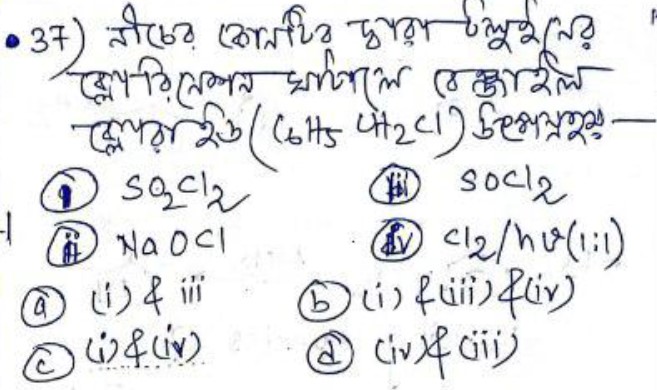 • 37) নীচের কোনটির দ্বারা টলুইনের
ক্লোরিনেশন ঘটালে বেঞ্জাইল
ক্লোরাইড (C6H5 CH2Cl) উৎপন্ন হয় —
(i) SO2Cl2 (iii) SOCl2
(ii) NaOCl (iv) Cl2/hν (1:1)
(a) (i) & iii (b) (i) & (iii) & (iv)
(c) (i) & (iv) (d) (iv) & (iii)